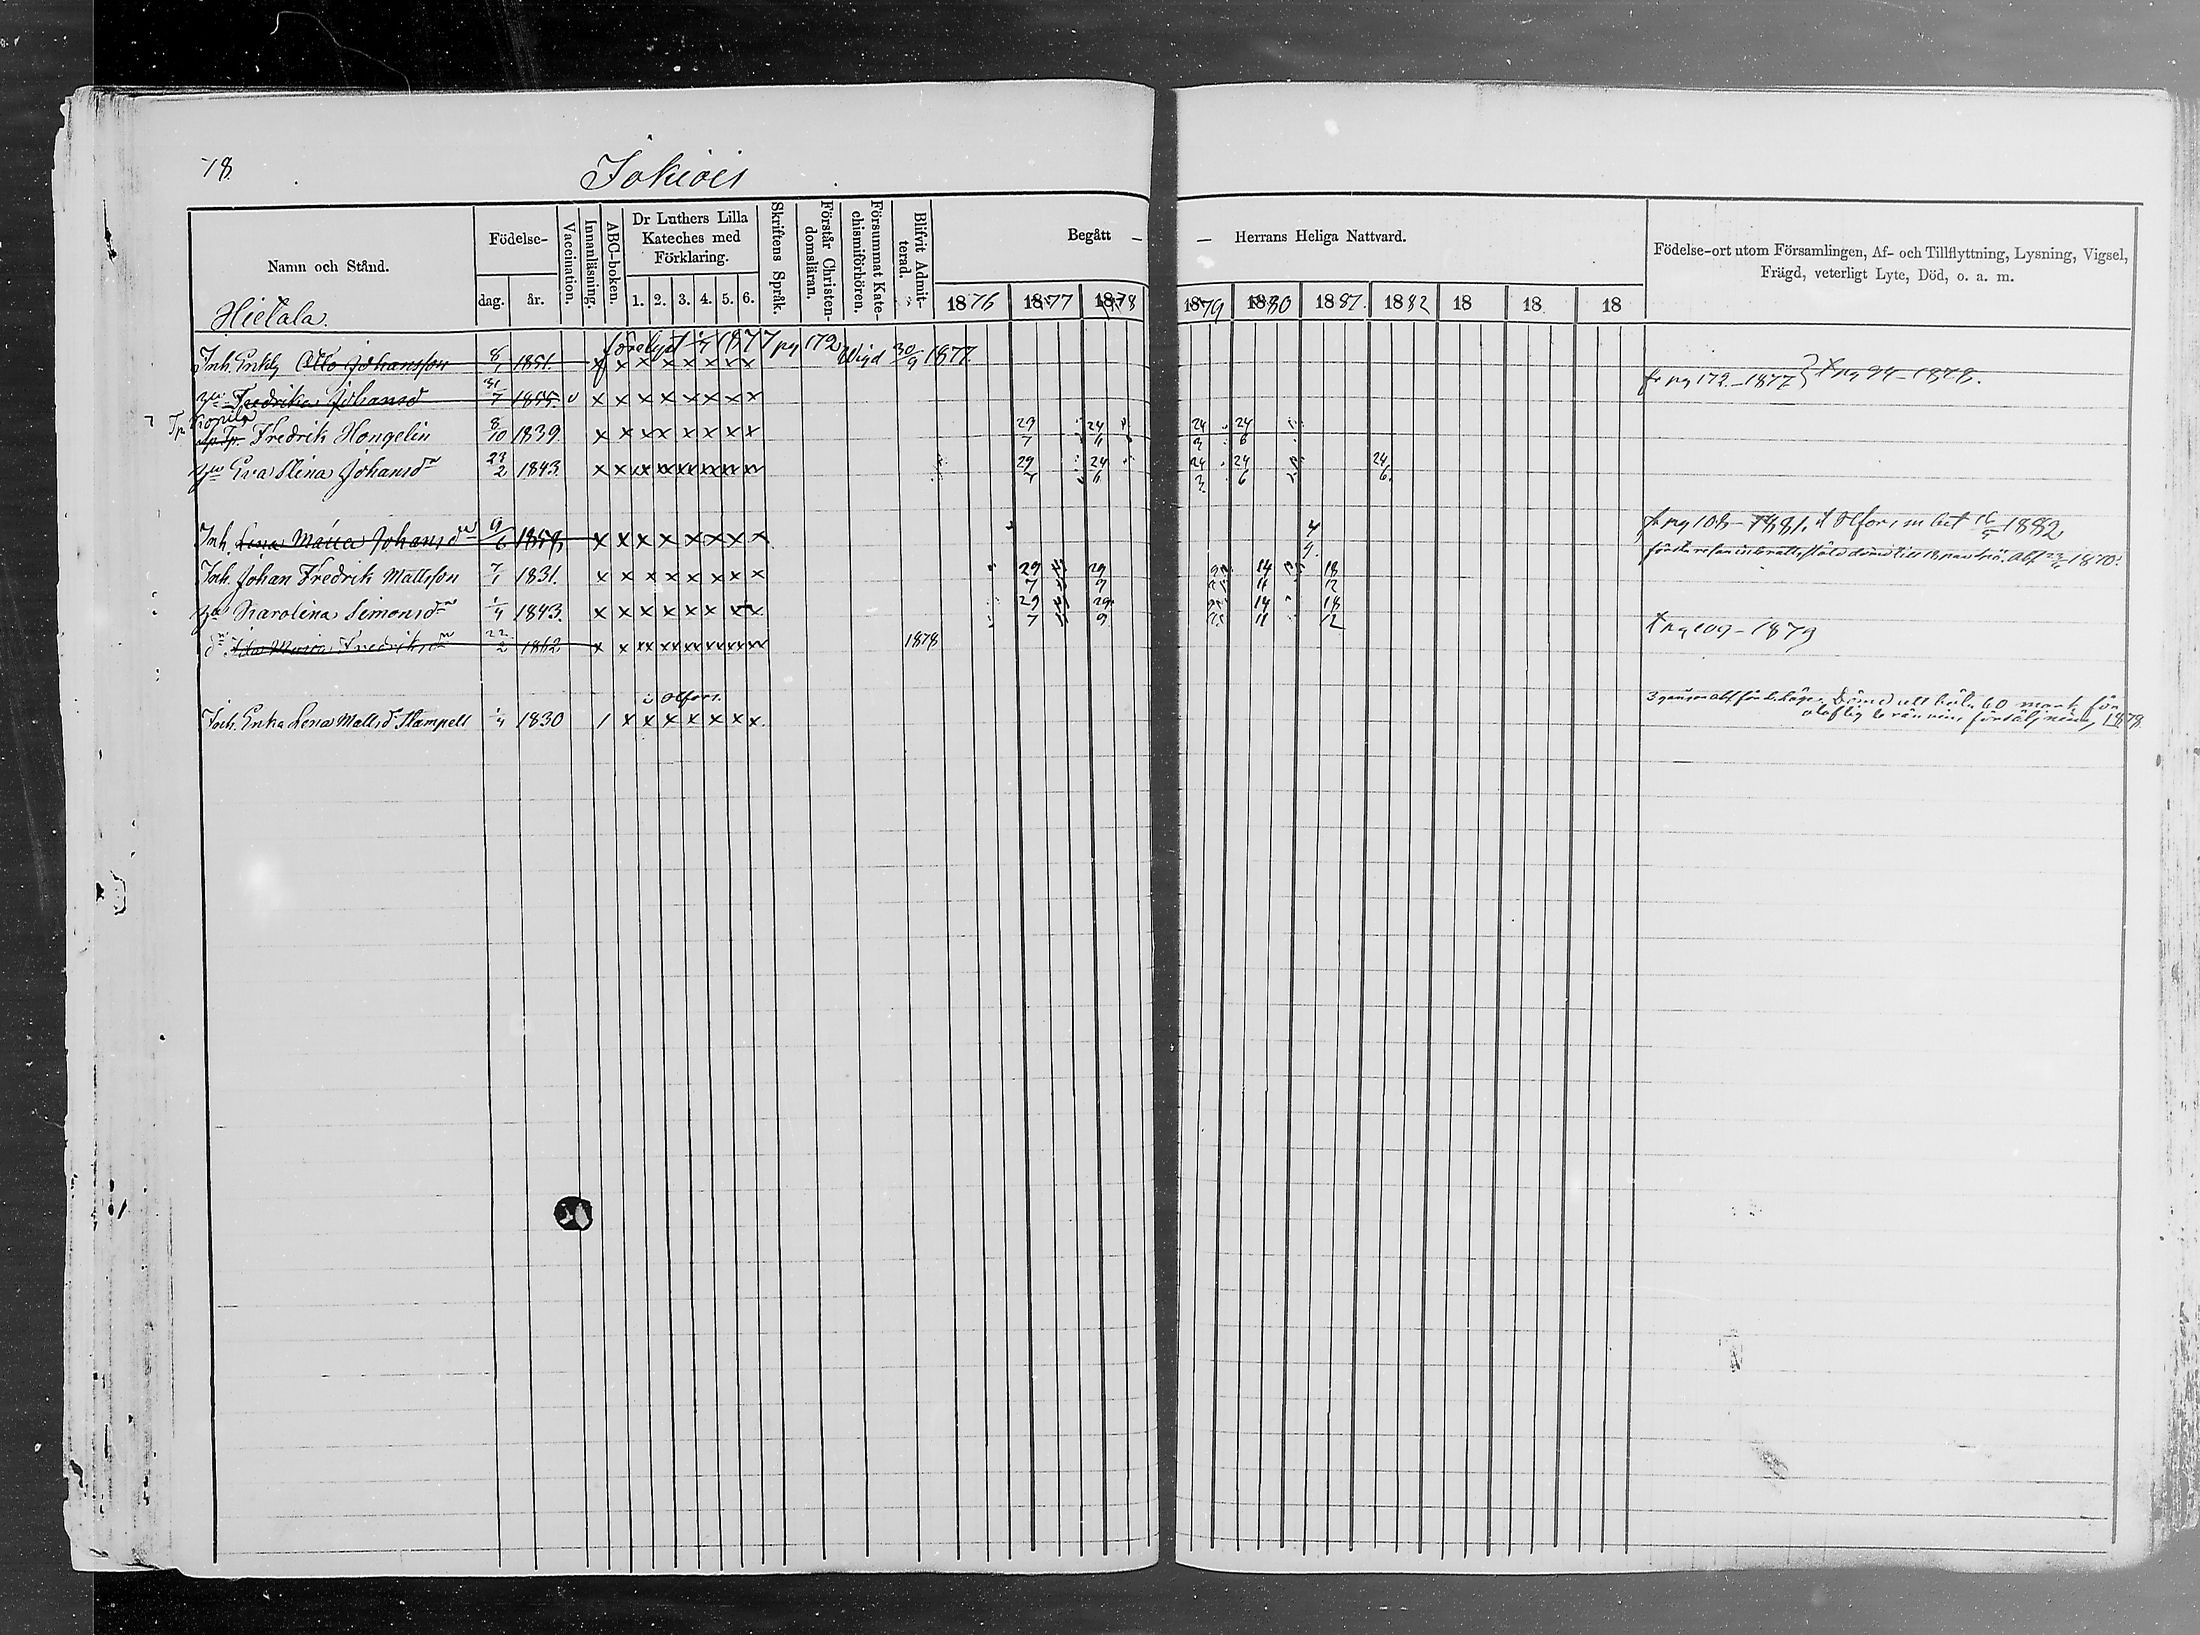 78.
Jokiois
Namn och Stånd.
Födelse-
dag.
år.
Vaccination.
Innanläsning.
ABC-boken.
Dr Luthers Lilla
Kateches med
Förklaring.
1. 2. 3. 4. 5. 6.
Skriftens Språk.
Förstår Christen-
domsläran.
Försummat Kate-
chismiförhören.
Blifvit Admit-
terad.
Begått —
— Herrans Heliga Nattvard.
1876 1877 1878 1879 1880 1881 1882 18 18 18
Födelse-ort utom Församlingen, Af- och Tillflyttning, Lysning, Vigsel,
Frägd, veterligt Lyte, Död, o. a. m.
Hietala.
1877 pg 172 Wigd 30/9 1877
Inh. Enkl. Otto Johansson 8/1 1851. x x x x x x x x
fr pg 172 – 1877 } t pg 94 – 1878.
Fredrika Johansd 31/7 1855. v x x x x x x x x
Fredrik Hongelin 8/10 1839 x x x x x x x x 29/7 24/11 24/3 24/6
Eva Stina Johansdr 23/2 1843. x x 29/7 24/11 24/3 24/6 24/6
Inh. Lena Maria Johansdr 9/6 x x x x x x x x 4/9
fr pg 108 – 1881. 1882
Inh. Johan Fredrik Mattsson 7/1 1831. x x x x x x x x 29/7 29/9 14/11 18/12
Karolina Simonsdr 1/4 1843. x x x x x x x x 29/7 29/9 14/11 18/12
Fredriksdr 22/2 1862 x x 1878
t pg 109 – 1879
Inh. Enka Lena Mattsd Stampell 1/4 1830 / x x x x x x x
60 mark för
olaflig bränvins försäljning 1878